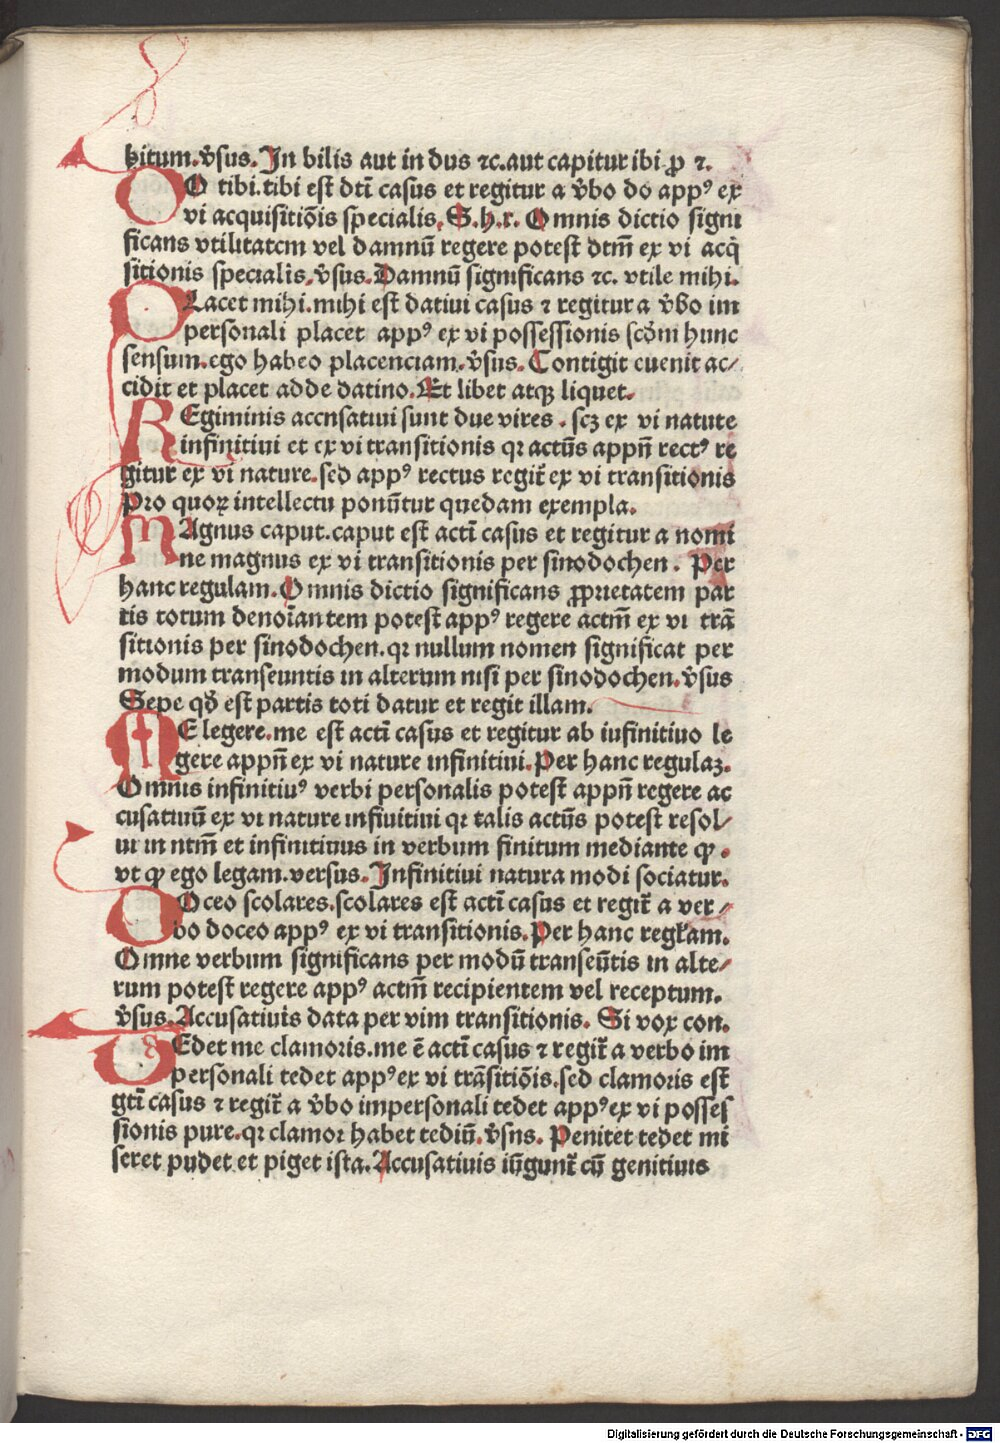 bitum.v̄sus. In bilis aut in dus ⁊c. aut capitur ibi ꝓ ⁊.
DO tibi.tibi est̄ dtī casus et regitur a v̄bo do appꝰ ex
vi acquisitiōis specialis. S.h.r. Omnis dictio signi
ficans vtilitatem vel damnū regere potest dtm̄ ex vi acq̄
sitionis specialis. v̄sus. Damnū significans ⁊c. vtile mihi.
PLacet mihi.mihi est̄ datiui casus ⁊ regitur a v̄bo im
personali placet appꝰ ex vi possessionis scd̄m hunc
sensum.ego habeo placenciam. v̄sus. Contigit euenit ac⸗
cidit et placet adde datino. Et libet atqꝫ liquet.
REgiminis accnsatiui sunt due vires . scꝫ ex vi natute
infinitiui et ex vi transitionis qꝛ actūs appn̄ rectꝰ re
gitur ex vi nature. sed appꝰ rectus regit̄ ex vi transitionis
Pro quoꝝ intellectu ponūtur quedam exempla.
MAgnus caput.caput est̄ actī casus et regitur a nomi
ne magnus ex vi transitionis per sinodochen . Per
hanc regulam. Omnis dictio significans ꝓprietatem par
tis totum denoīantem potest appꝰ regere actm̄ ex vi trā
sitionis per sinodochen. qꝛ nullum nomen significat per
modum transeuntis in alterum nisi per sinodochen. v̄sus
Sepe qd̄ est partis toti datur et regit illam.
ME legere.me est̄ actī casus et regitur ab iufinitiuo le
gere appn̄ ex vi nature infinitiui. Per hanc regulaꝫ.
Omnis infinitiuꝰ verbi personalis potest appn̄ regere ac
cusatiuū ex vi nature infiuitiui qꝛ talis actūs potest resol⸗
ui in ntm̄ et infinitiuus in verbum finitum mediante ꝙ .
vt ꝙ ego legam. versus. Infinitiui natura modi sociatur.
DOceo scolares.scolares est̄ actī casus et regit̄ a ver⸗
bo doceo appꝰ ex vi transitionis. Per hanc regl̄am.
Omne verbum significans per modū transeūtis in alte⸗
rum potest regere appꝰ actm̄ recipientem vel receptum.
v̄sus. Accusatiuis data per vim transitionis. Si vox con.
TEdet me clamoris.me ē actī casus ⁊ regit̄ a verbo im
personali tedet appꝰ ex vi trāsitiōis. sed clamoris est̄
gtī casus ⁊ regit̄ a v̄bo impersonali tedet appꝰ ex vi posses
sionis pure. qꝛ clamor habet tediū. v̄sns. Penitet tedet mi
seret pudet et piget ista. Accusatiuis iūgunt̄ cū genitiuis